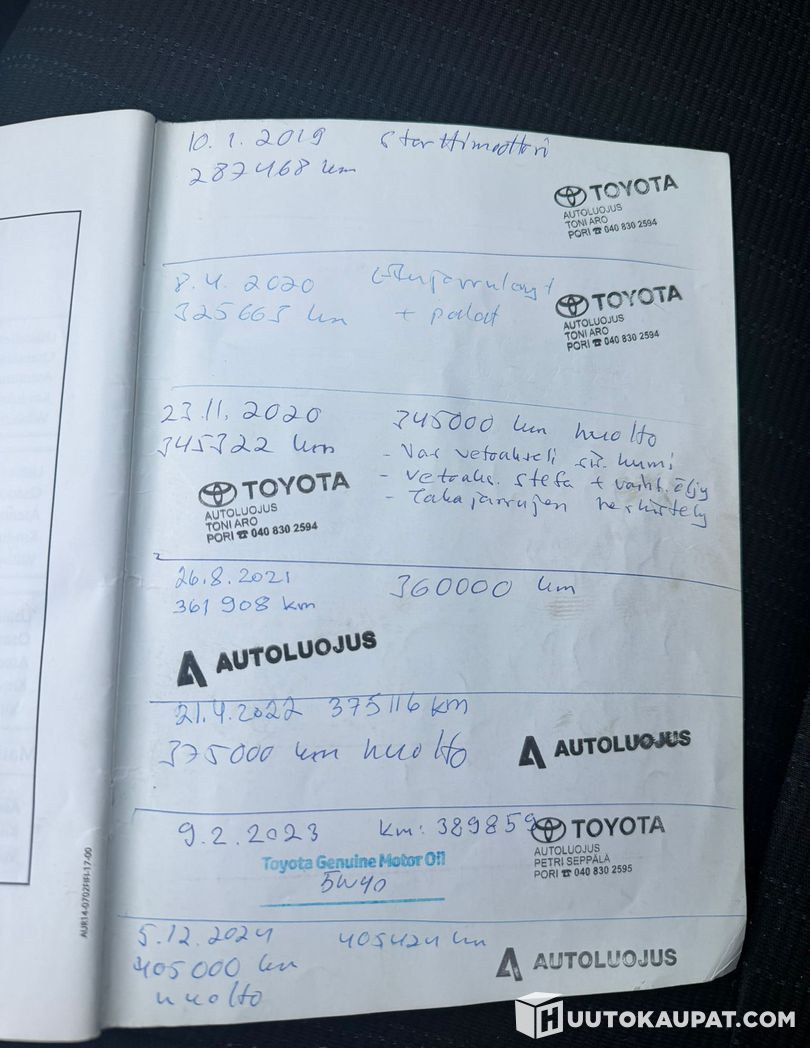 10.1.2019 Starttimoottori
287468 km
TOYOTA
AUTOLUOJUS
TONI ARO
PORI ☎ 040 830 2594
8.4. 2020
325663 km + palat
TOYOTA
AUTOLUOJUS
TONI ARO
PORI ☎ 040 830 2594
23.11. 2020 345000 km huolto
345322 km
- Vas vetoakseli sis. kumi
- vetoaks. stefa + vaiht. öljy
- Takajarrujen herkistely
TOYOTA
AUTOLUOJUS
TONI ARO
PORI ☎ 040 830 2594
26.8.2021 360000 km
361 908 km
AUTOLUOJUS
21.4.2022 375116 km
375000 km huolto
AUTOLUOJUS
9.2.2023 km: 389859
Toyota Genuine Motor Oil
5W40
TOYOTA
AUTOLUOJUS
PETRI SEPPÄLÄ
PORI ☎ 040 830 2595
5.12.2024 405424 km
405000 km
huolto
AUTOLUOJUS
AUR14-0702HH-17-00
HUUTOKAUPAT.COM